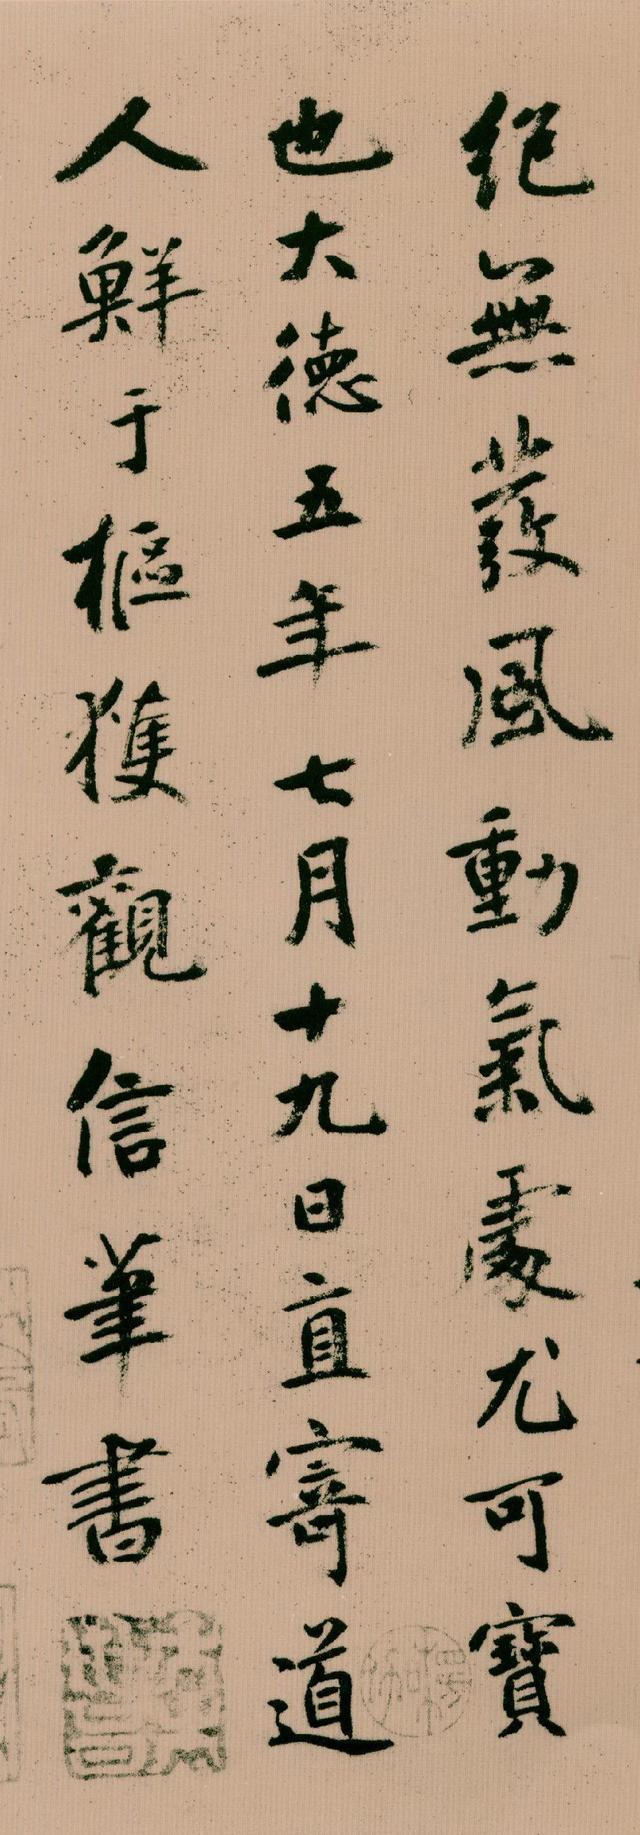 絕無發風動氣處尤可寶
也大德五年七月十九日直寄道
人鮮于樞獲觀信筆書